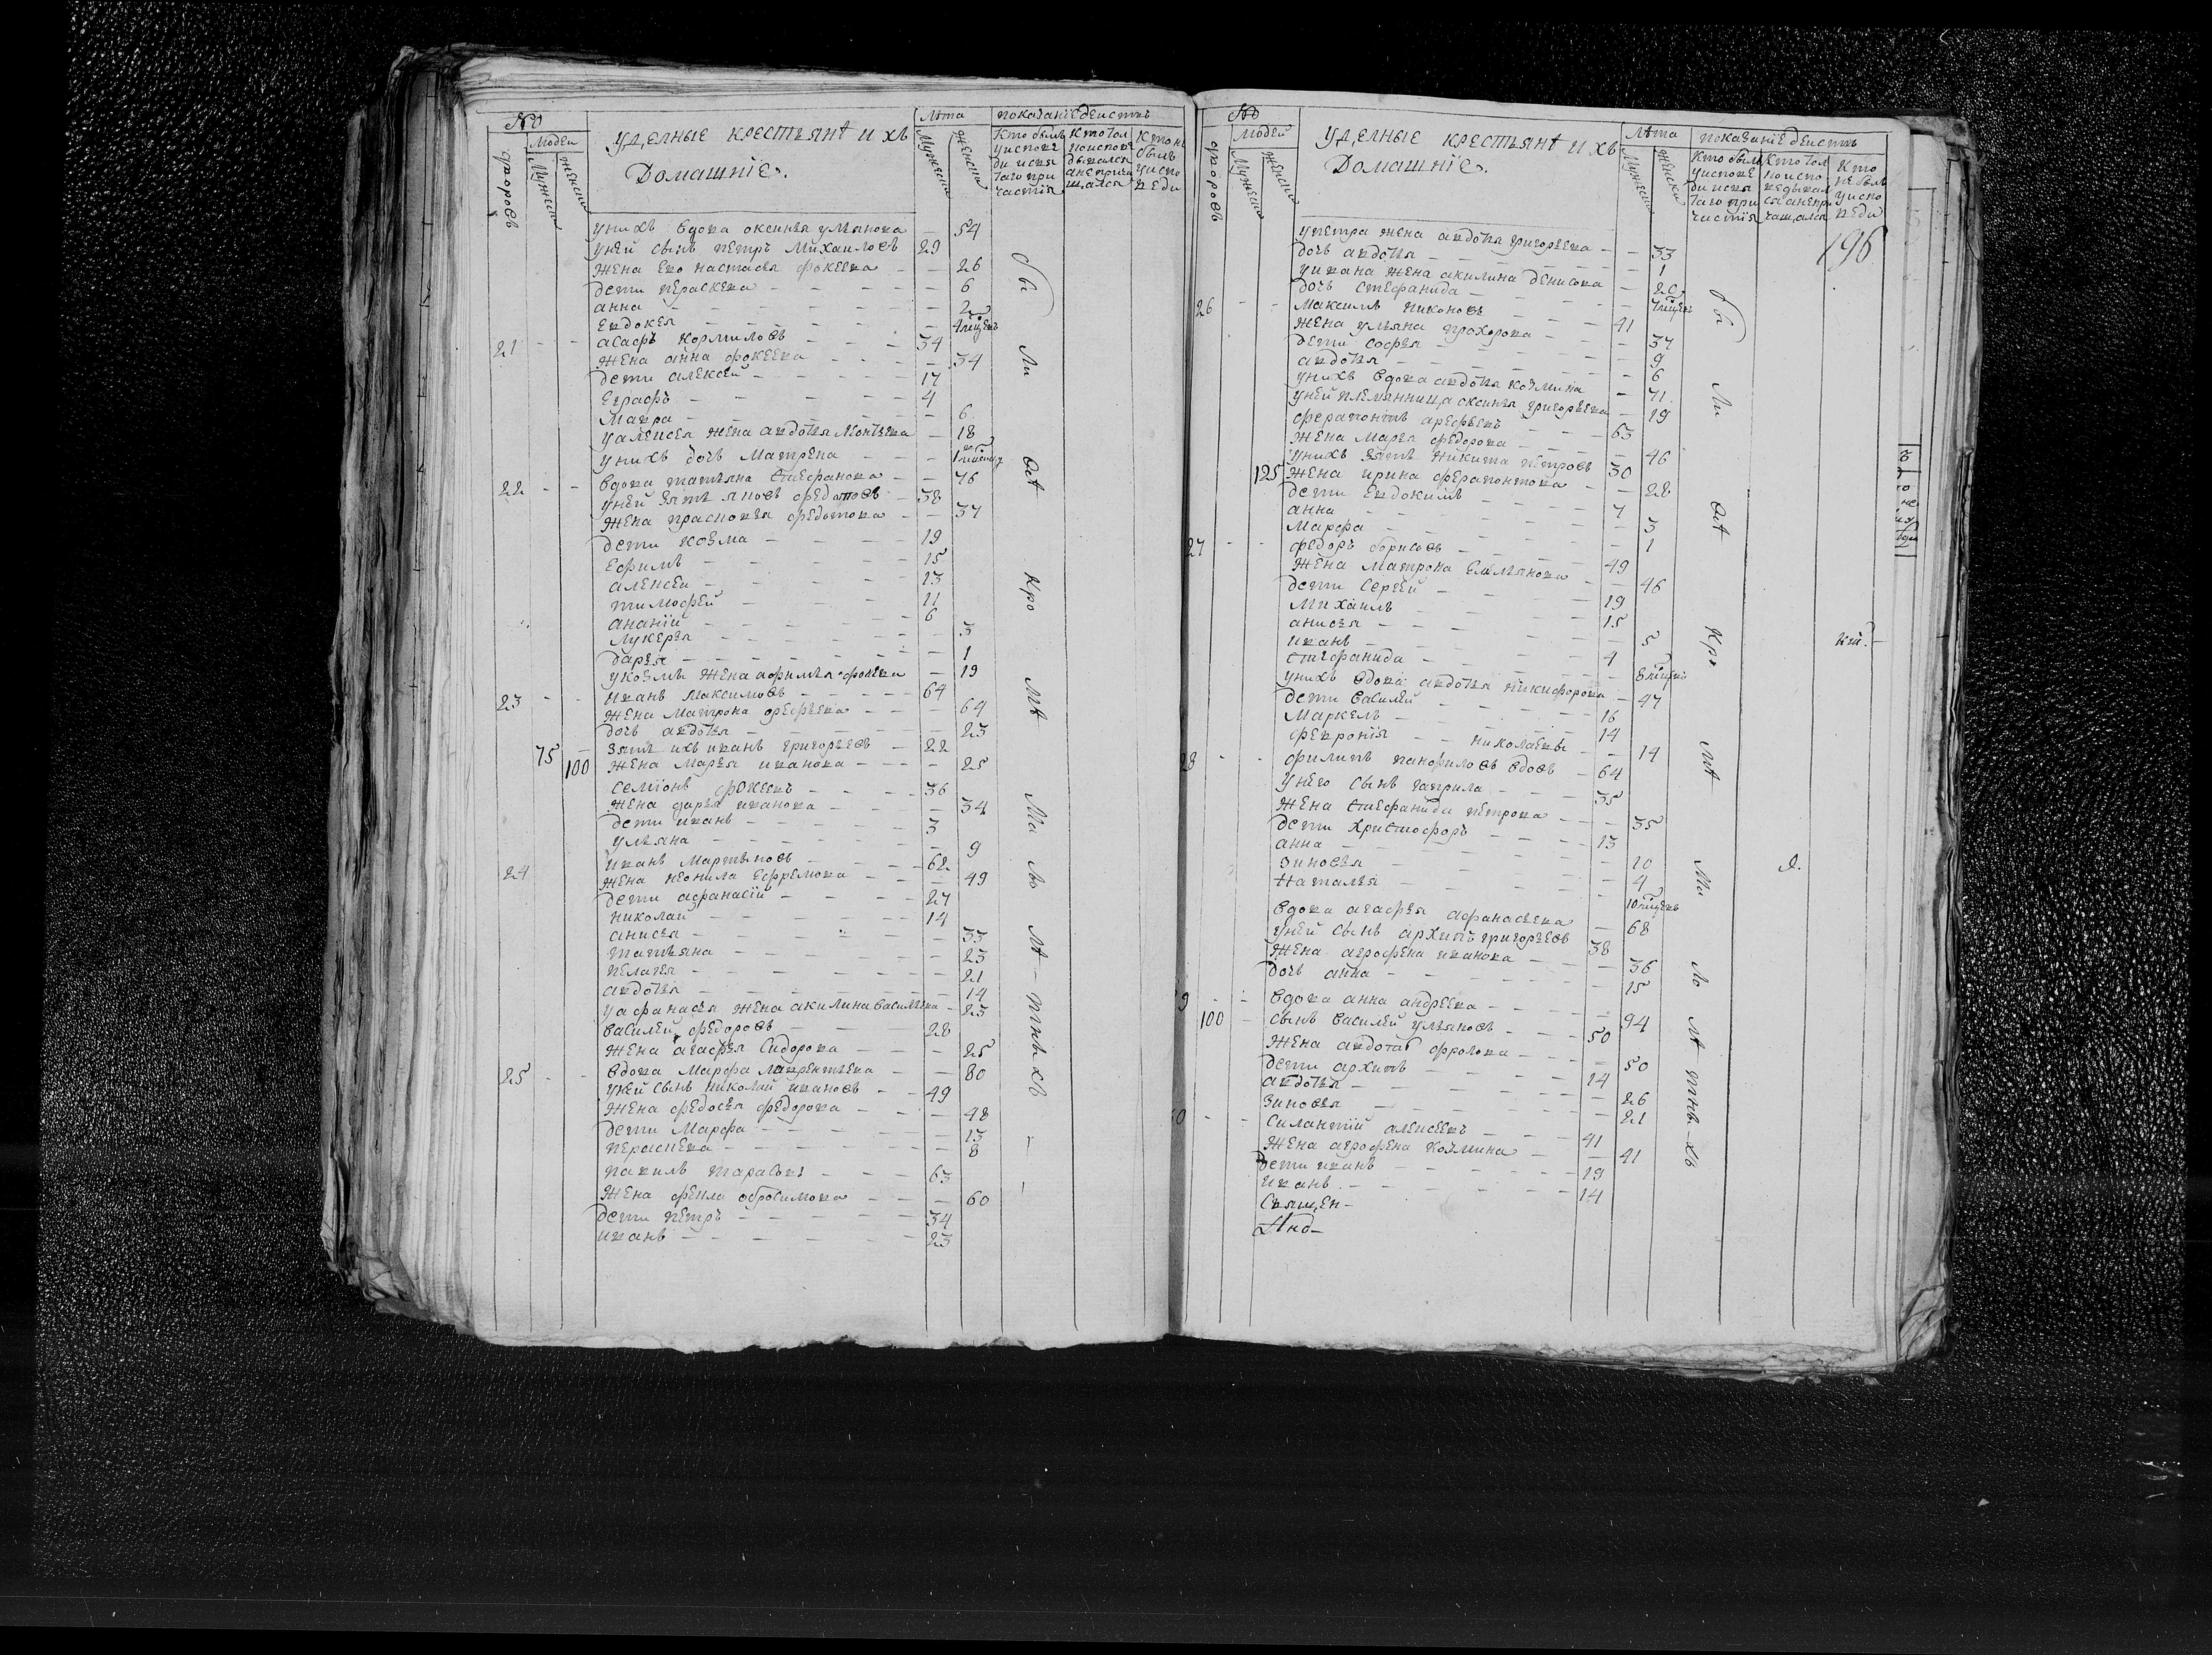 №
Людей
дворовъ
Мужеск
Женски
Удѣлные крестьянѣ и ихъ
Домашніе.
Лѣта
Мужеск
Женски
показаніе действъ
Кто былъ у исповеди и святаго причастія
Кто тол поисповедывался а не причащался
Кто не былъ у исповеди
у нихъ вдова оксинья ульянова — 54
у ней сынъ петръ Михаиловъ 29
жена Ево настасья фокеева — — 26
дети пераскева — — 6
анна — — 2
Евдокея — — 4 мцевъ
21 — — асафъ кормиловъ — — 34
жена анна фокеева — — 34
дети алексей — — 17
Еграфъ — — 4
Мавра — — 6
у алексея жена авдотья Леонтьева — 18
у нихъ дочь Матрена — —
22 — — вдова татьяна Стефанова — — 76
у ней зять яковъ федотовъ — 38
жена прасковья федотова — — 37
дети козма — — 19
Ефимъ — — 15
алексеи — — 13
тимофей — — 11
ананій — — 6
лукерья — — 3
дарья — — 1
у козмы жена афимья фокеева — 19
23 — — иванъ Максимовъ — — 64
жена Матрона орефьева — — 64
дочь авдотья — — 23
75 — зять ихъ иванъ григорьевъ — 22
100 жена Марья иванова — — 25
Семіонъ фокеевъ — — 36
жена дарья иванова — — 34
дети иванъ — — 3
ульяна — — 9
24 иванъ Мартыновъ — — 62
жена неонила Ефремова — — 49
дети афанасій — — 27
николаи — — 14
анисья — — 33
татьяна — — 23
пелагея — — 21
авдотья — — 14
у афанасья жена акилина васильева — 23
василеи федоровъ — — 28
жена агафья Сидорова — — 25
25 — — вдова Марфа лаврентьева — — 80
у ней сынъ николаи ивановъ — — 49
жена федосья федорова — — 48
дети Марфа — — 13
пераскева — — 8
павилъ тарасовъ — — 63
жена фекла обросимова — — 60
дети петръ — — 34
иванъ — — 23
бы
ли
Ост
кро
мѣ
Ма
ло
лѣ —
тнѣ
хъ
№
Людей
дворовъ
Мужеск
Женски
Удѣлные крестьянѣ и ихъ
Домашніе.
Лѣта
Мужеск
Женски
показаніе действъ
Кто былъ у исповеди и святаго причастія
Кто тол по исповедывался а не причащался
Кто не былъ у исповеди
196
у петра жена авдотья григорьева — 33
дочь авдотья — — 1
у ивана жена акилина денисова — 20
дочь Стефанида — — 7 мцевъ
26 — — Максимъ никоновъ — — 41
жена ульяна прохорова — — 37
дети софья — — 9
авдотья — — 6
у нихъ вдова авдотья козмина — 71
у ней племянница оксинья григорьева — 19
ферапонтъ арефьевъ — — 63
жена Марья федорова — — 46
у нихъ зять никита петровъ 30
125 жена ирина ферапонтова — — 28
дети Евдокимъ — — 7
анна — — 3
Марфа — — 1
27 — — федоръ борисовъ — — 49
жена Матрона Емельянова — 46
дети сергей — — 19
Михаилъ — — 15
анисья — — 5
иванъ — — 4
Стефанида — — 8 мцевъ
у нихъ вдова авдотья никифорова — 47
дети василеи — — 16
Маркелъ — — 14
февронія — — николаевы — — 14
28 — — филипъ панфиловъ вдовъ — 64
у него сынъ гаврила — — 35
жена Стефанида петрова — — 35
дети христофоръ — — 13
анна — — 10
зиновья — — 4
наталья — — 10 мцевъ
вдова агафья афанасьева — 68
у ней сынъ архипъ григорьевъ 38
жена агрофена иванова — — 36
дочь анна — — 15
9 — — вдова анна андреева — — 94
100 — сынъ василей ульяновъ — — 50
жена авдотья фролова — — 50
дети архипъ — — 14
авдотья — — 26
зиновья — — 21
0 — — Силантій алексеевъ — — 41
жена агрофена козмина — — 41
дети иванъ — — 19
иванъ — — 14
Священ-
бы
ли
Ост
кро
мѣ
Ма
ло
лѣ
тнѣ-
хъ